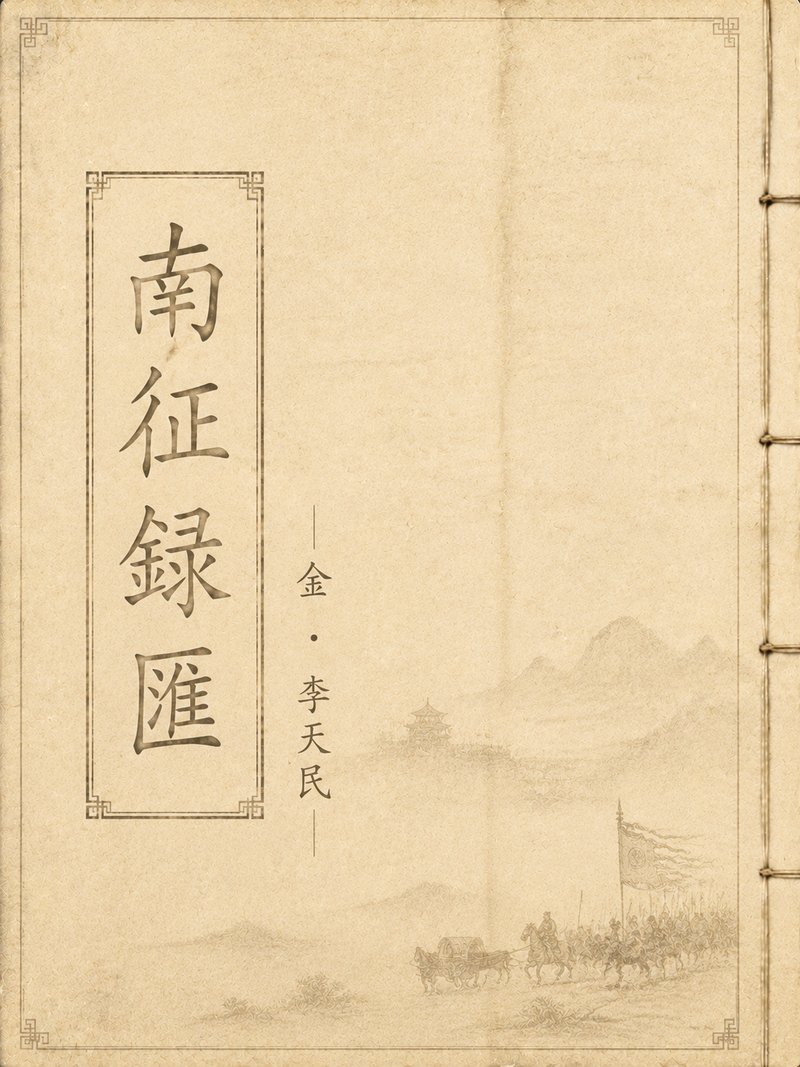 南征録匯
金·李天民